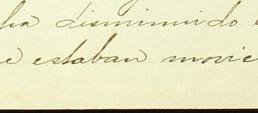 ha disminuido
e estaban movie